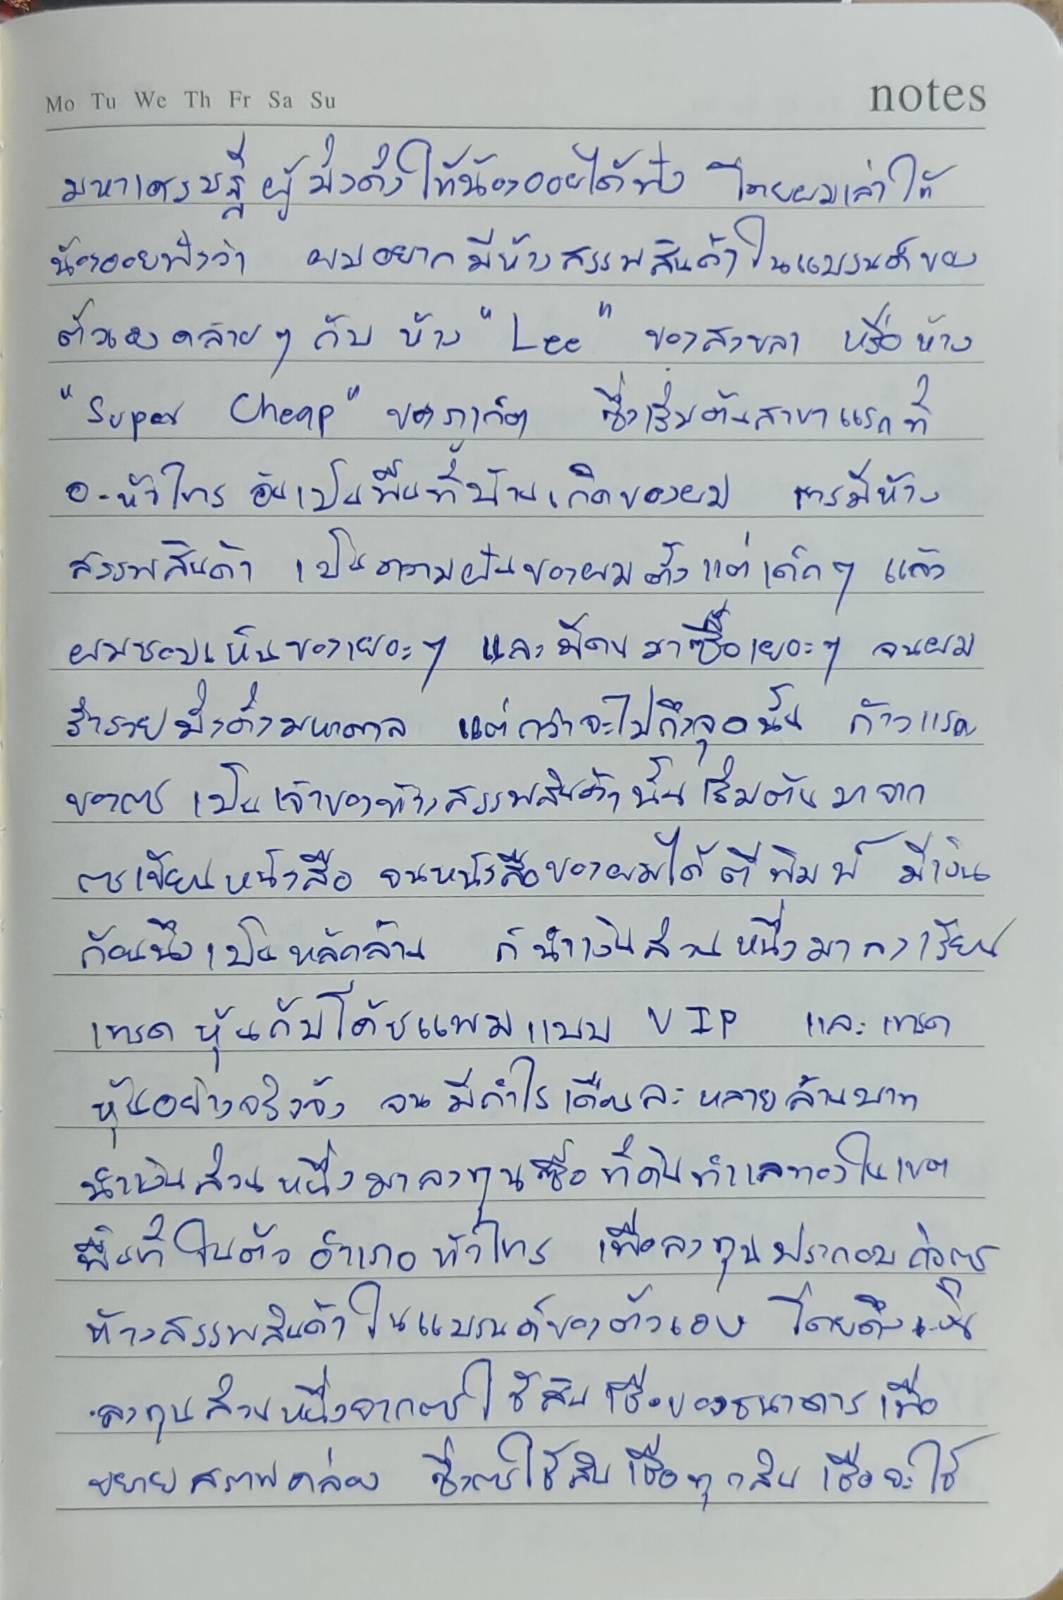 Mo Tu We Th Fr Sa Su notes
มหาเศรษฐีผู้มั่งคั่งให้น้องออยได้ฟัง โดยผมเล่าให้
น้องออยฟังว่า ผมอยากมีห้างสรรพสินค้าในแบรนด์ของ
ตัวเองคล้ายๆ กับ ห้าง "Lee" ของสงขลา หรือห้าง
"Super Cheap" ของภูเก็ต ซึ่งเริ่มต้นสาขาแรกที่
อ.หัวไทร อันเป็นพื้นที่บ้านเกิดของผม การมีห้าง
สรรพสินค้า เป็นความฝันของผมตั้งแต่เด็กๆ แล้ว
ผมชอบเห็นของเยอะๆ และมีคนมาซื้อเยอะๆ จนผม
ร่ำรวยมั่งคั่งมหาศาล แต่กว่าจะไปถึงจุดนั้น ก้าวแรก
ของการเป็นเจ้าของห้างสรรพสินค้านั้นเริ่มต้นมาจาก
การเขียนหนังสือ จนหนังสือของผมได้ตีพิมพ์ มีเงิน
ก้อนนึงเป็นหลักล้าน ก็นำเงินส่วนหนึ่งมาลงเรียน
เทรดหุ้นกับโค้ชแพมแบบ VIP และเทรด
หุ้นอย่างจริงจัง จนมีกำไรเดือนละหลายล้านบาท
นำเงินส่วนหนึ่งมาลงทุนซื้อที่ดินทำเลทองในเขต
พื้นที่ในตัวอำเภอหัวไทร เพื่อลงทุนประกอบกิจการ
ห้างสรรพสินค้าในแบรนด์ของตัวเอง โดยดึงเงิน
ลงทุนส่วนหนึ่งจากการใช้สินเชื่อของธนาคารเพื่อ
ขยายสภาพคล่อง ซึ่งการใช้สินเชื่อทุกสินเชื่อจะใช้